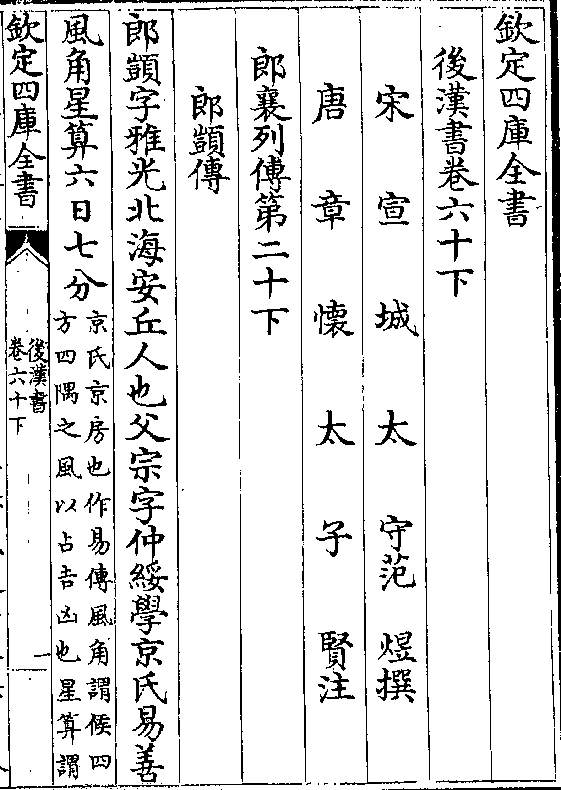 欽定四庫全書
後漢書卷六十下
宋宣城太守范煜撰
唐章懷太子賢注
郎襄列傳第二十下
郎顗傳
郎顗字雅光北海安丘人也父宗字仲綏學京氏易善
風角星算六日七分
京氏京房也作易傳風角謂候四
方四隅之風以占吉凶也星算謂
欽定四庫全書
後漢書
卷六十下
一